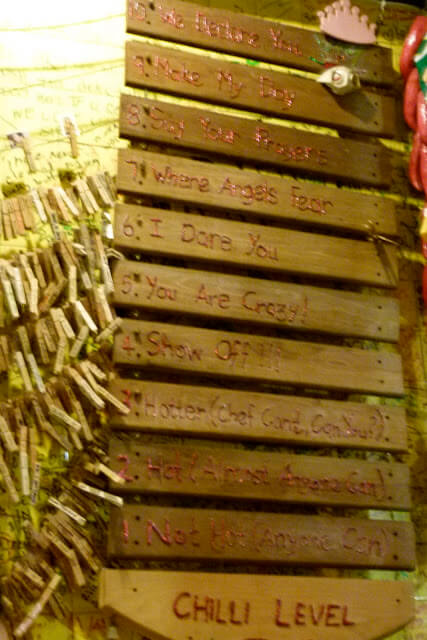 10. We Declare You
9. Make My Day
8. Say Your Prayers
7. Where Angels Fear
6. I Dare You
5. You Are Crazy!
4. Show Off !!!
3. Hotter (Chef Cant, Can You?)
2. Hot (Almost Anyone Can)
1. Not Hot (Anyone Can)
CHILLI LEVEL